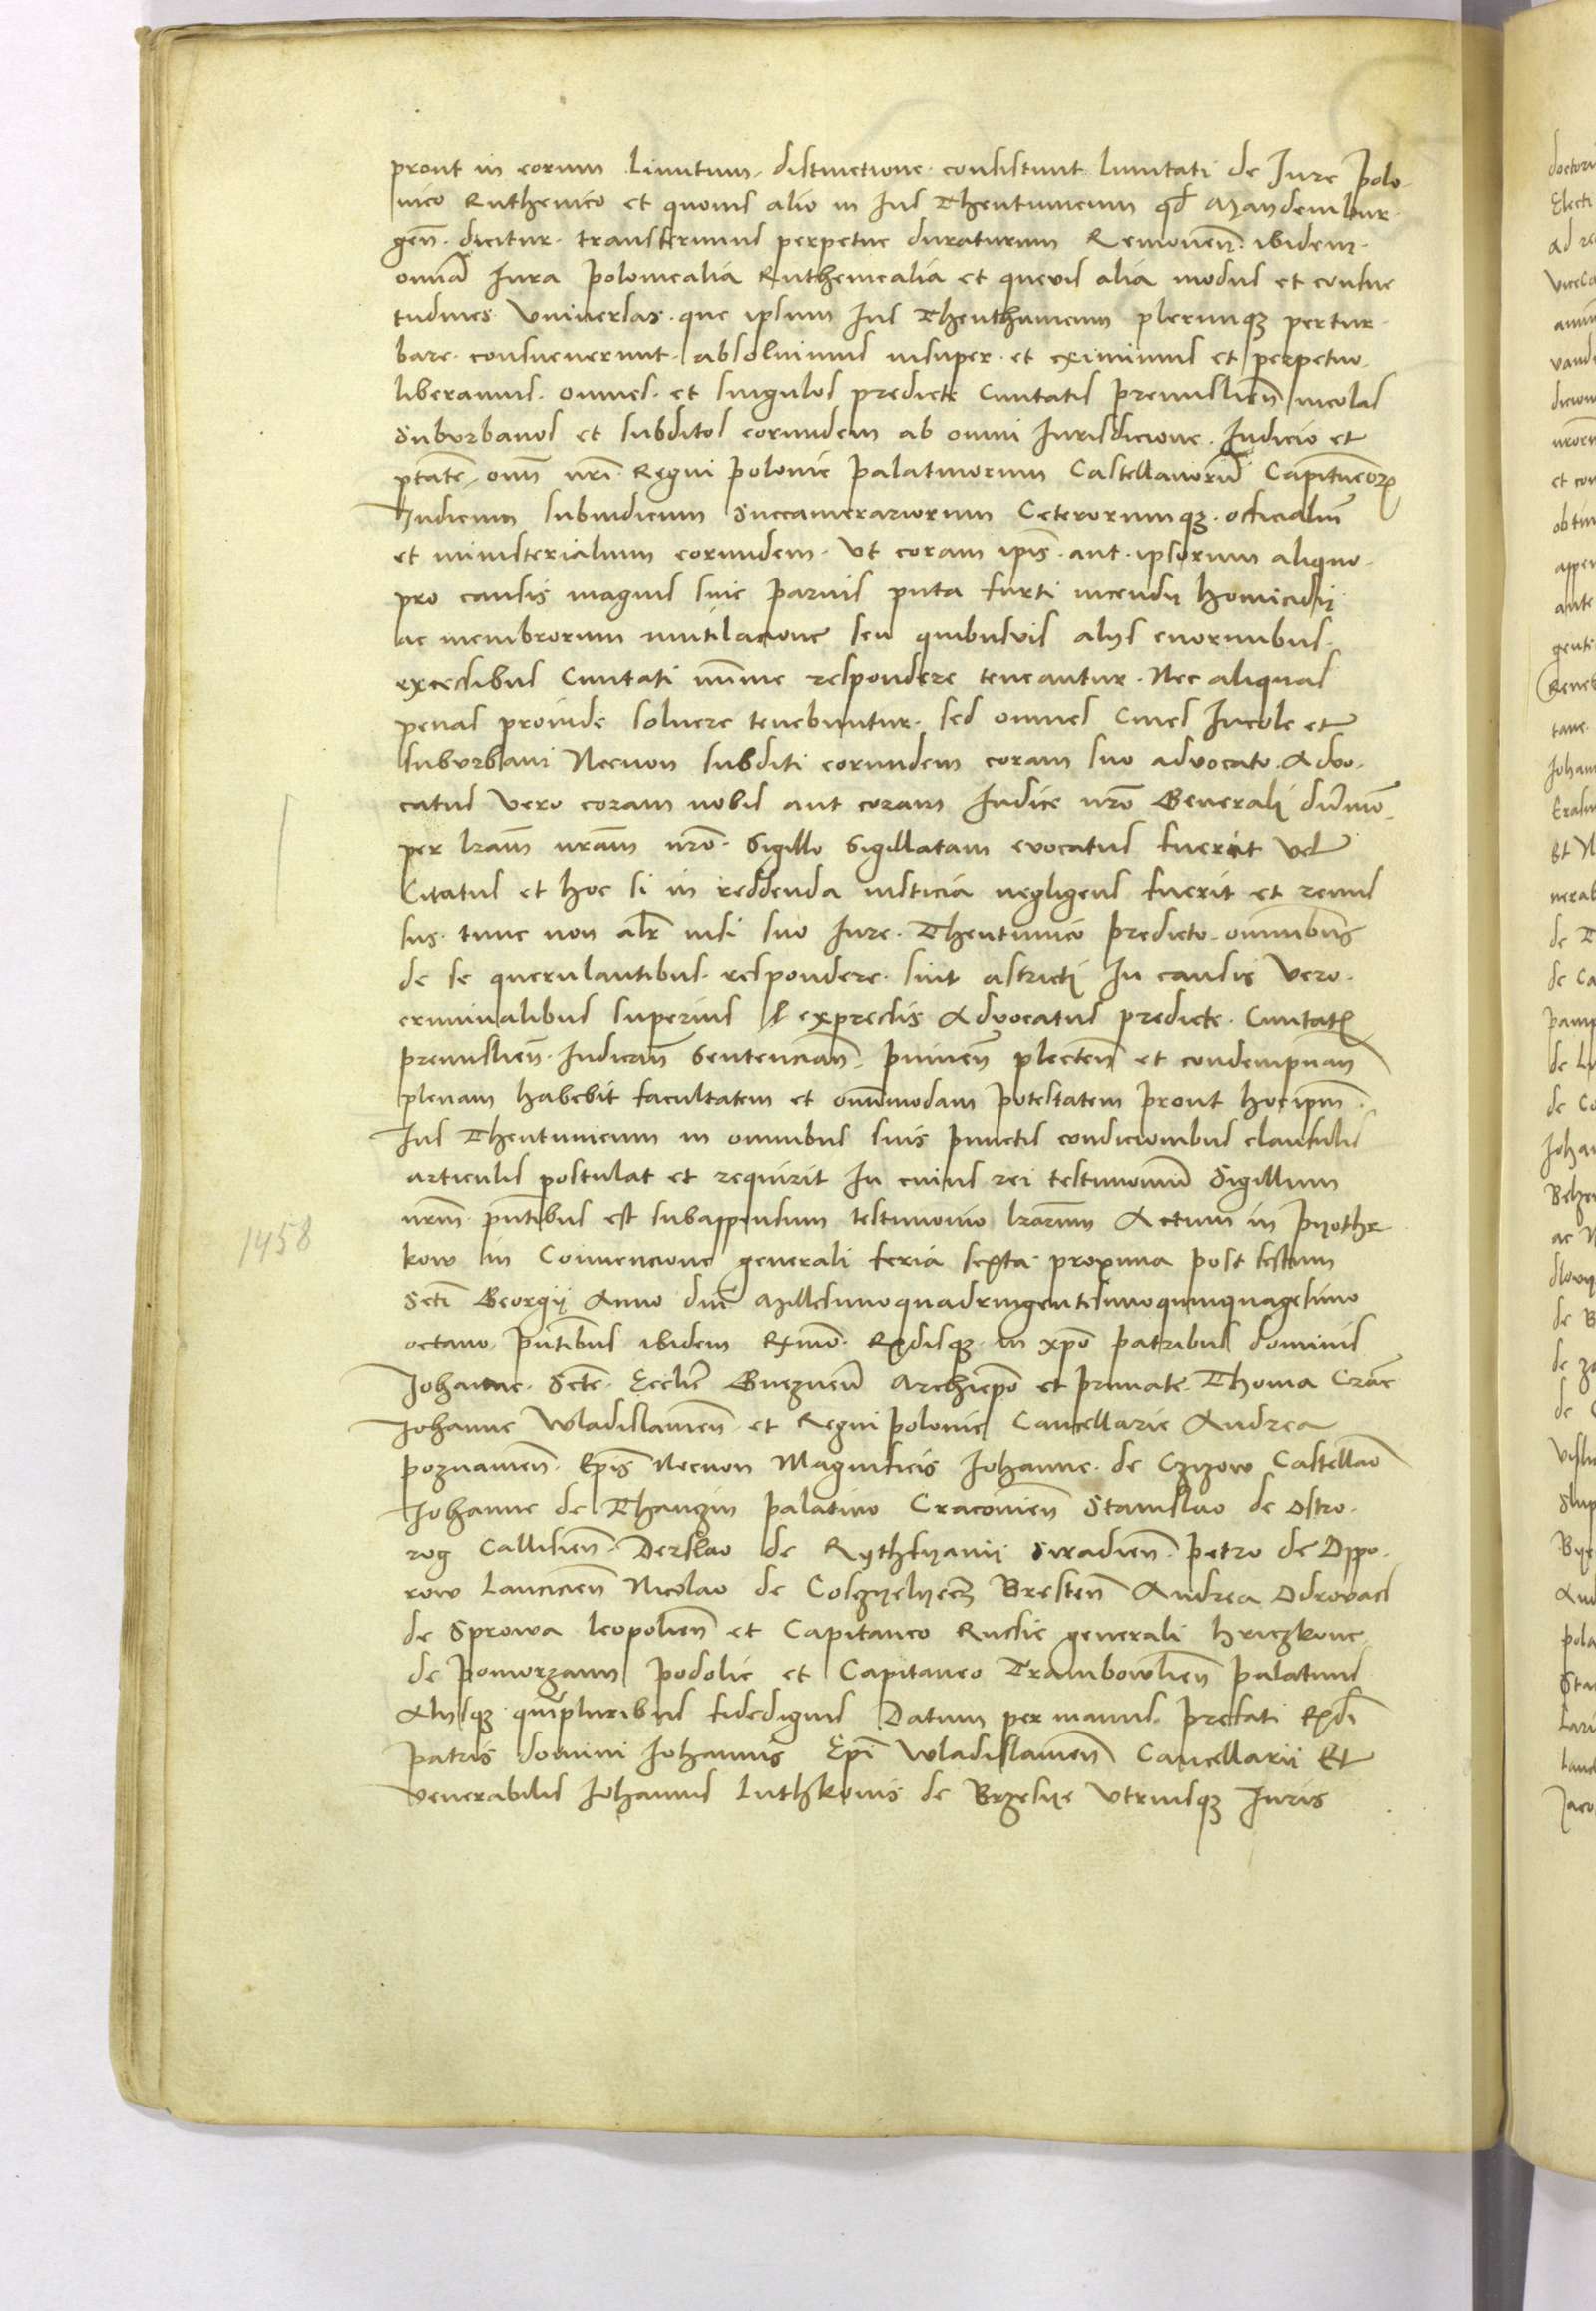 prout in eorum limitum distinctione consistunt limitati de Jure Polo
nico Ruthenico et quovis alio in Jus Theutunicum qd Maydembur
gen dicitur transferimus perpetue duraturum Removen ibidem
omnia Jura Polonicalia Ruthenicalia et quevis alia modus et consue
tudines Universas que ipsum Jus Theuthunicum plerumqz pertur
bare consueverunt absolvimus insuper et eximimus et perpetuo
liberamus omnes et singulos predicte Civitatis Premislien incolas
Suburbanos et subditos eorundem ab omni Jurisdicione Judicio et
ptate omi nri Regni Polonie Palatinorum Castellanorum Capitaneorz
Judicum subiudicum Succamerariorum Ceterorumqz officialium
et ministerialium eorundem Ut coram ipis aut ipsorum aliquo
pro causis magnis sive parvis puta furti incendy homicidy
ac membrorum mutilacione seu quibusvis alys enormibus
excessibus Civitati minime respondere teneantur Nec aliquas
penas proinde solvere tenebuntur sed omnes Cives Incole et
suburbani Necnon subditi eorundem coram suo advocato Advo
catus Vero coram nobis aut coram Judice nro Generali dumo
per lram nram nro Sigillo Sigillatam evocatus fuerit vel
Citatus et hoc si in reddenda iusticia negligens fuerit et remis
sus tunc non alr nisi suo Jure Theutunico predicto omnibus
de se querulantibus respondere sint astricti In causis Vero
criminalibus superius expressis Advocatus predicte Civitatis
Premislien Judicim Sentencian Punien plecten et condempnan
plenam habebit facultatem et omimodam Potestatem prout hoc ipm
Jus Theutunicum in omnibus suis punctis condicionibus clausulis
articulis postulat et requirit In cuius rei testimonium Sigillum
nrum pntibus est subappensum testimonio lrarum Actum in Pyothr
kow in Convencione generali feria sexta proxima post festum
Scti Georgy Anno dni Millesimoquadringentesimoquinquagesimo
octavo Pntibus ibidem Rxmo Rxdisqz in xpo Patribus dominis
Johanne Scte Ecclie Gneznen Archiepo et Primate Thoma Crac
Johanne Wladislavien et Regni Polonie Cancellarie Andrea
Poznanien Epis Necnon Magnificis Johanne de Czyzow Castellano
Johanne de Thanczin Palatino Cracovien Stanislao de Ostro
rog Callisien Derslao de Rythfyanij Siradien Petro de Oppo
row Lancicien Nicolao de Coszyelyecz Bresten Andrea Odrovas
de Sprowa Leopolien et Capitaneo Russie generali Hriczkone
de Pomorzann Podolie et Capitaneo Trambowlien Palatinis
Alysqz quampluribus fidedignis Datum per manus Prefati Rxdi
Patris domini Johannis Epi Wladislavien Cancellarii Et
Venerabilis Johannis Luthkonis de Brzesye Utriusqz Juris
1458